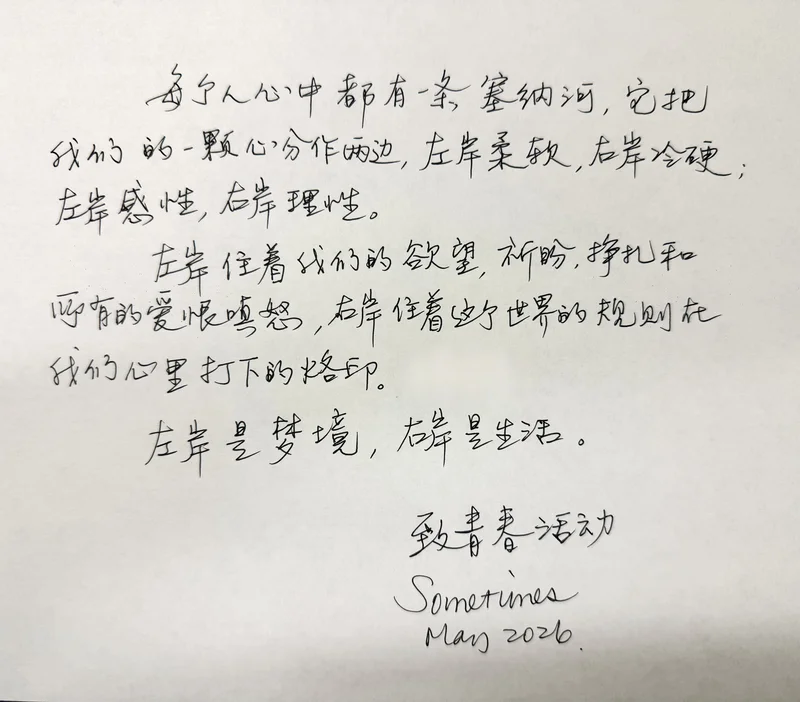 每个人心中都有一条塞纳河，它把
我们的一颗心分作两边，左岸柔软，右岸冷硬；
左岸感性，右岸理性。
左岸住着我们的欲望，祈盼，挣扎和
所有的爱恨嗔怒，右岸住着这个世界的规则在
我们心里打下的烙印。
左岸是梦境，右岸是生活。
致青春活动
Sometimes
May 2026.